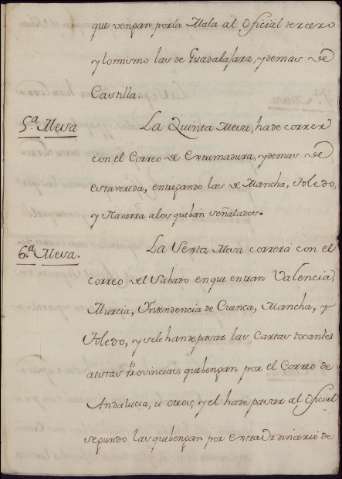 que vengan por la Mala al Oficial tercero
y lo mismo las de Guadalaxara, y demas de
Castilla.
5.ª Mesa La Quinta Mesa, ha de correr
con el Correo de Extremadura, y demas de
esta vereda, entregando las de Mancha, Toledo,
y Navarra a los que ban señalados.
6.ª Mesa. La Sexta Mesa correrá con el
correo del Sabado en que entran Valencia,
Murcia, Intendencia de Cuenca, Mancha, y
Toledo, y se le han de pasar las Cartas tocantes
a estas Provincias que bengan por el Correo de
Andalucia, u otros, y el ha de pasar al Oficial
segundo las que bengan por este ordinario de